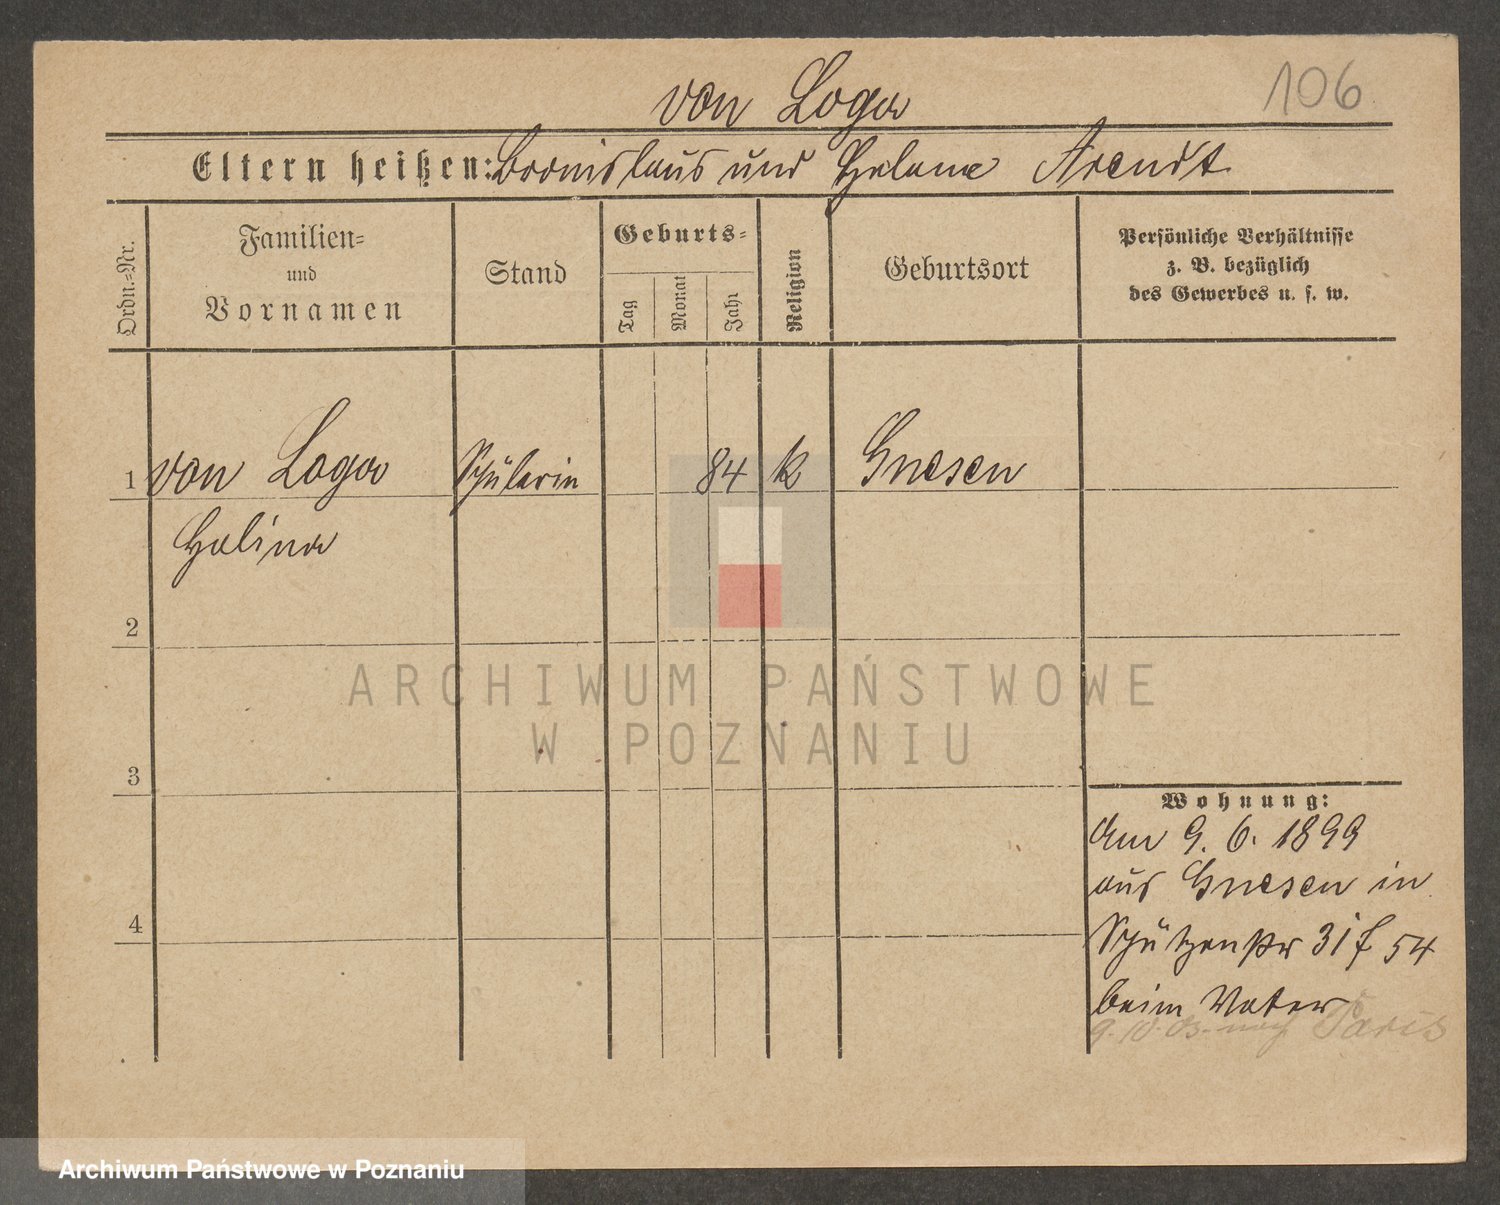 106
von Loga
Eltern heißen: Bronislaus und Helene Arendt
Ordn.-Nr.
Familien-
und
Vornamen
Stand
Geburts-
Tag
Monat
Jahr
Religion
Geburtsort
Persönliche Verhältnisse
z. B. bezüglich
des Gewerbes u. s. w.
1 von Loga Schülerin 84 k Gnesen
Halina
2
3
4
Wohnung:
Am 9. 6. 1899
aus Gnesen in
Schützenstr 31 f 54
beim Vater
nach Paris
ARCHIWUM PAŃSTWOWE
W POZNANIU
Archiwum Państwowe w Poznaniu